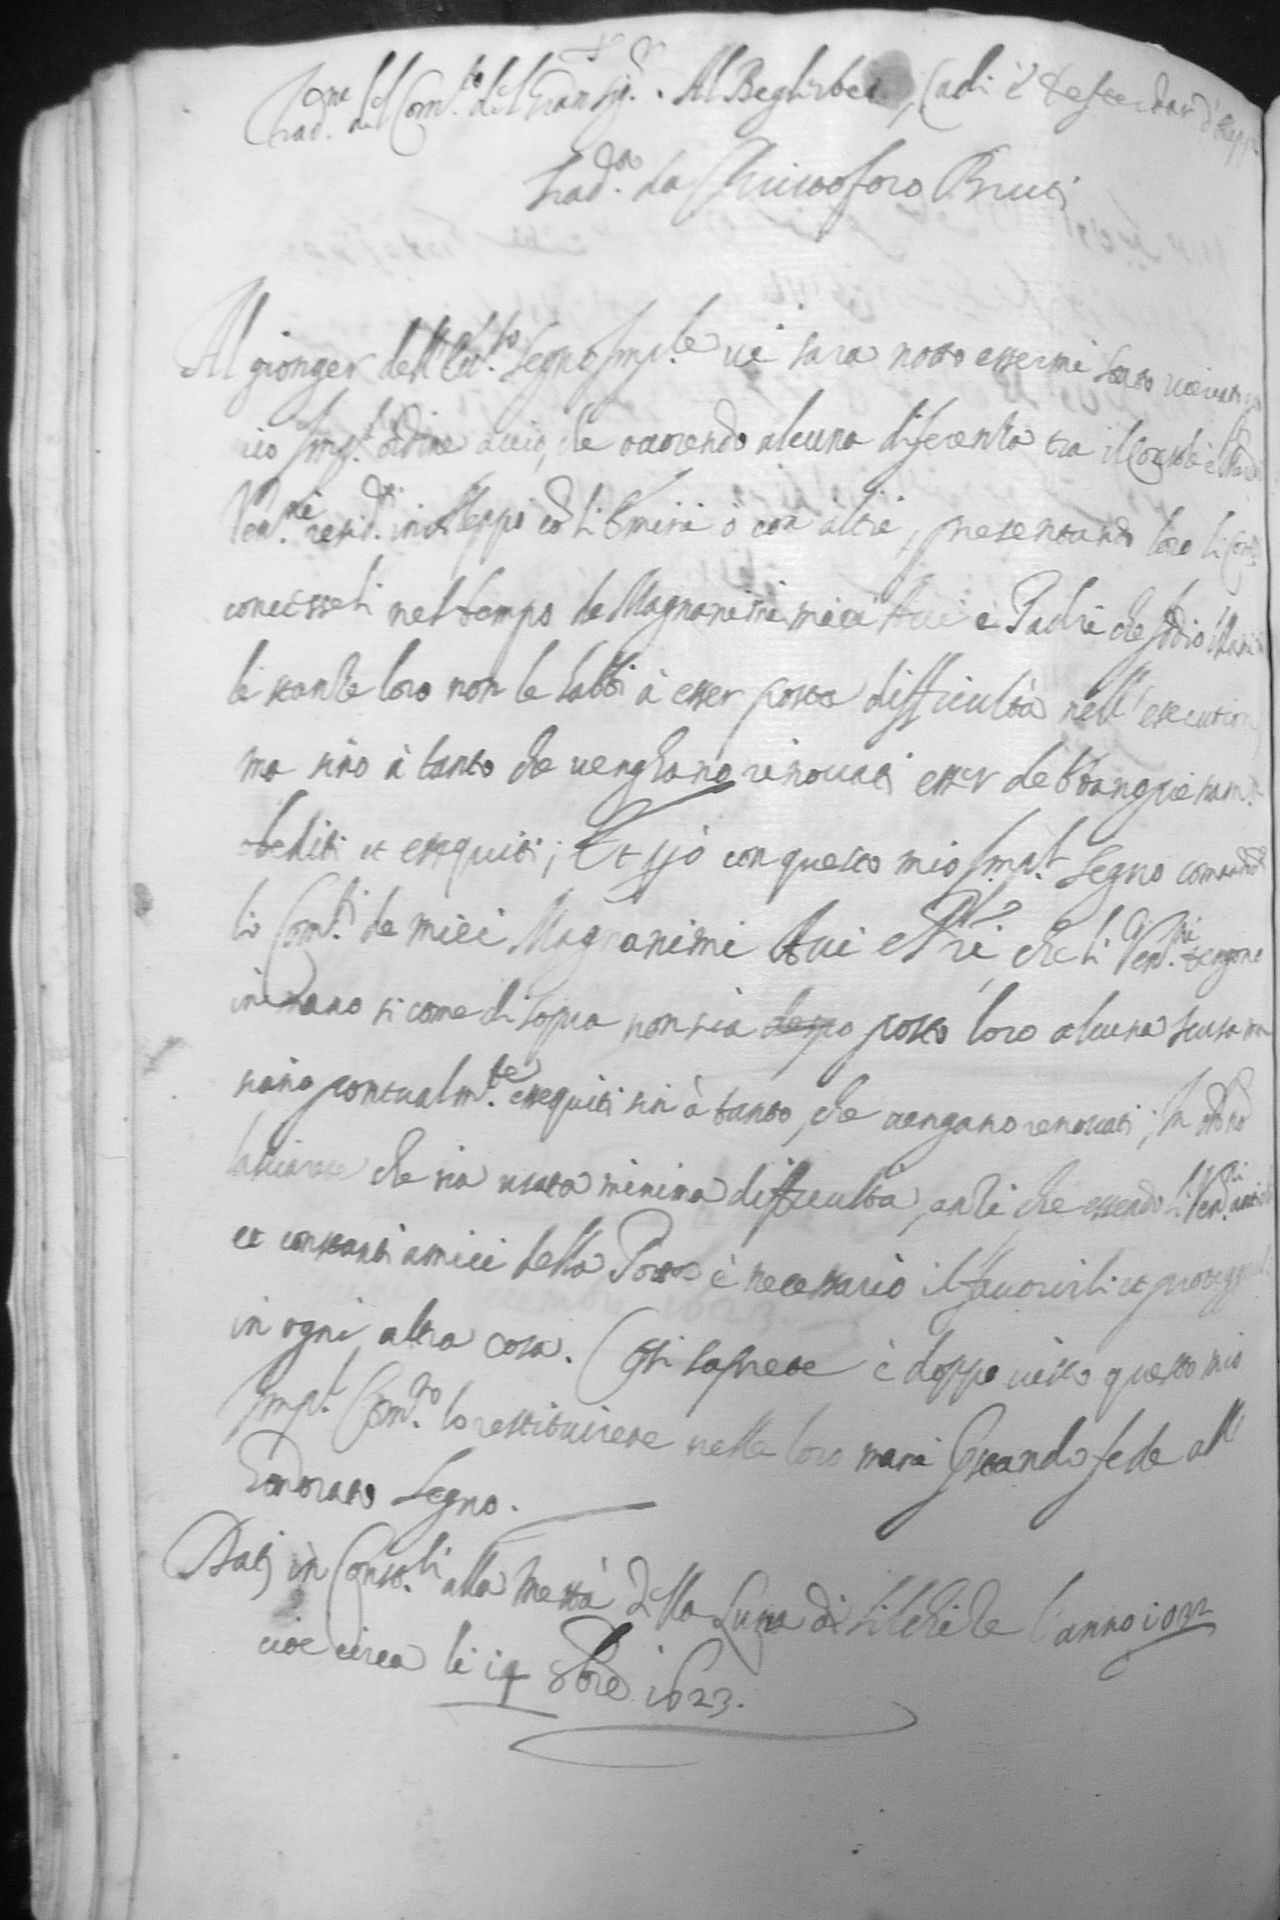 Trad.ne del Com.to del Gran Sig.r. Al Beglerbei, Cadi è Defterdar d'Alepp
Trad.to da Christoforo Bruti
Al gionger dell' Ecc.so segno Imp.le vi sara noto essermi stato
mio Imp.l ordine acciò, che occorendo alcuna diferenza tra il Console è
Ven.ni resid.ti in Aleppo cò li Emini ò con altri, presentando loro li
concesseli nel tempo de Magnanimi miei Avi è Padri che
le stanze loro non le habbi à esser posta difficultà nell' essecution
ma sino à tanto che venghano rinovati esser debbano
obediti et essequiti; Et Jo con questo mio Imp.l segno comando
li Com.ti de miei Magnanimi Avi e Pri, che li Ven.ni tengono
in mano si come di sopra non sia posto loro alcuna scusa ma
siano pontualm.te essequiti sin à tanto, che vengano renovati;
lasciarete che sia usata minima difficultà, anzi che essendo li Ven.ni
et constanti amici della Porta è necessario il favorirli et
in ogni altra cosa. Cosi saprete è doppo visto questo mio
Imp.l Com.to lo restituirete nelle loro mani prestando fede all
honorato segno.
Dat in Const.li alla metà della Luna di Silchide l'anno 1032
cioe circa li 14 8bre 1623.